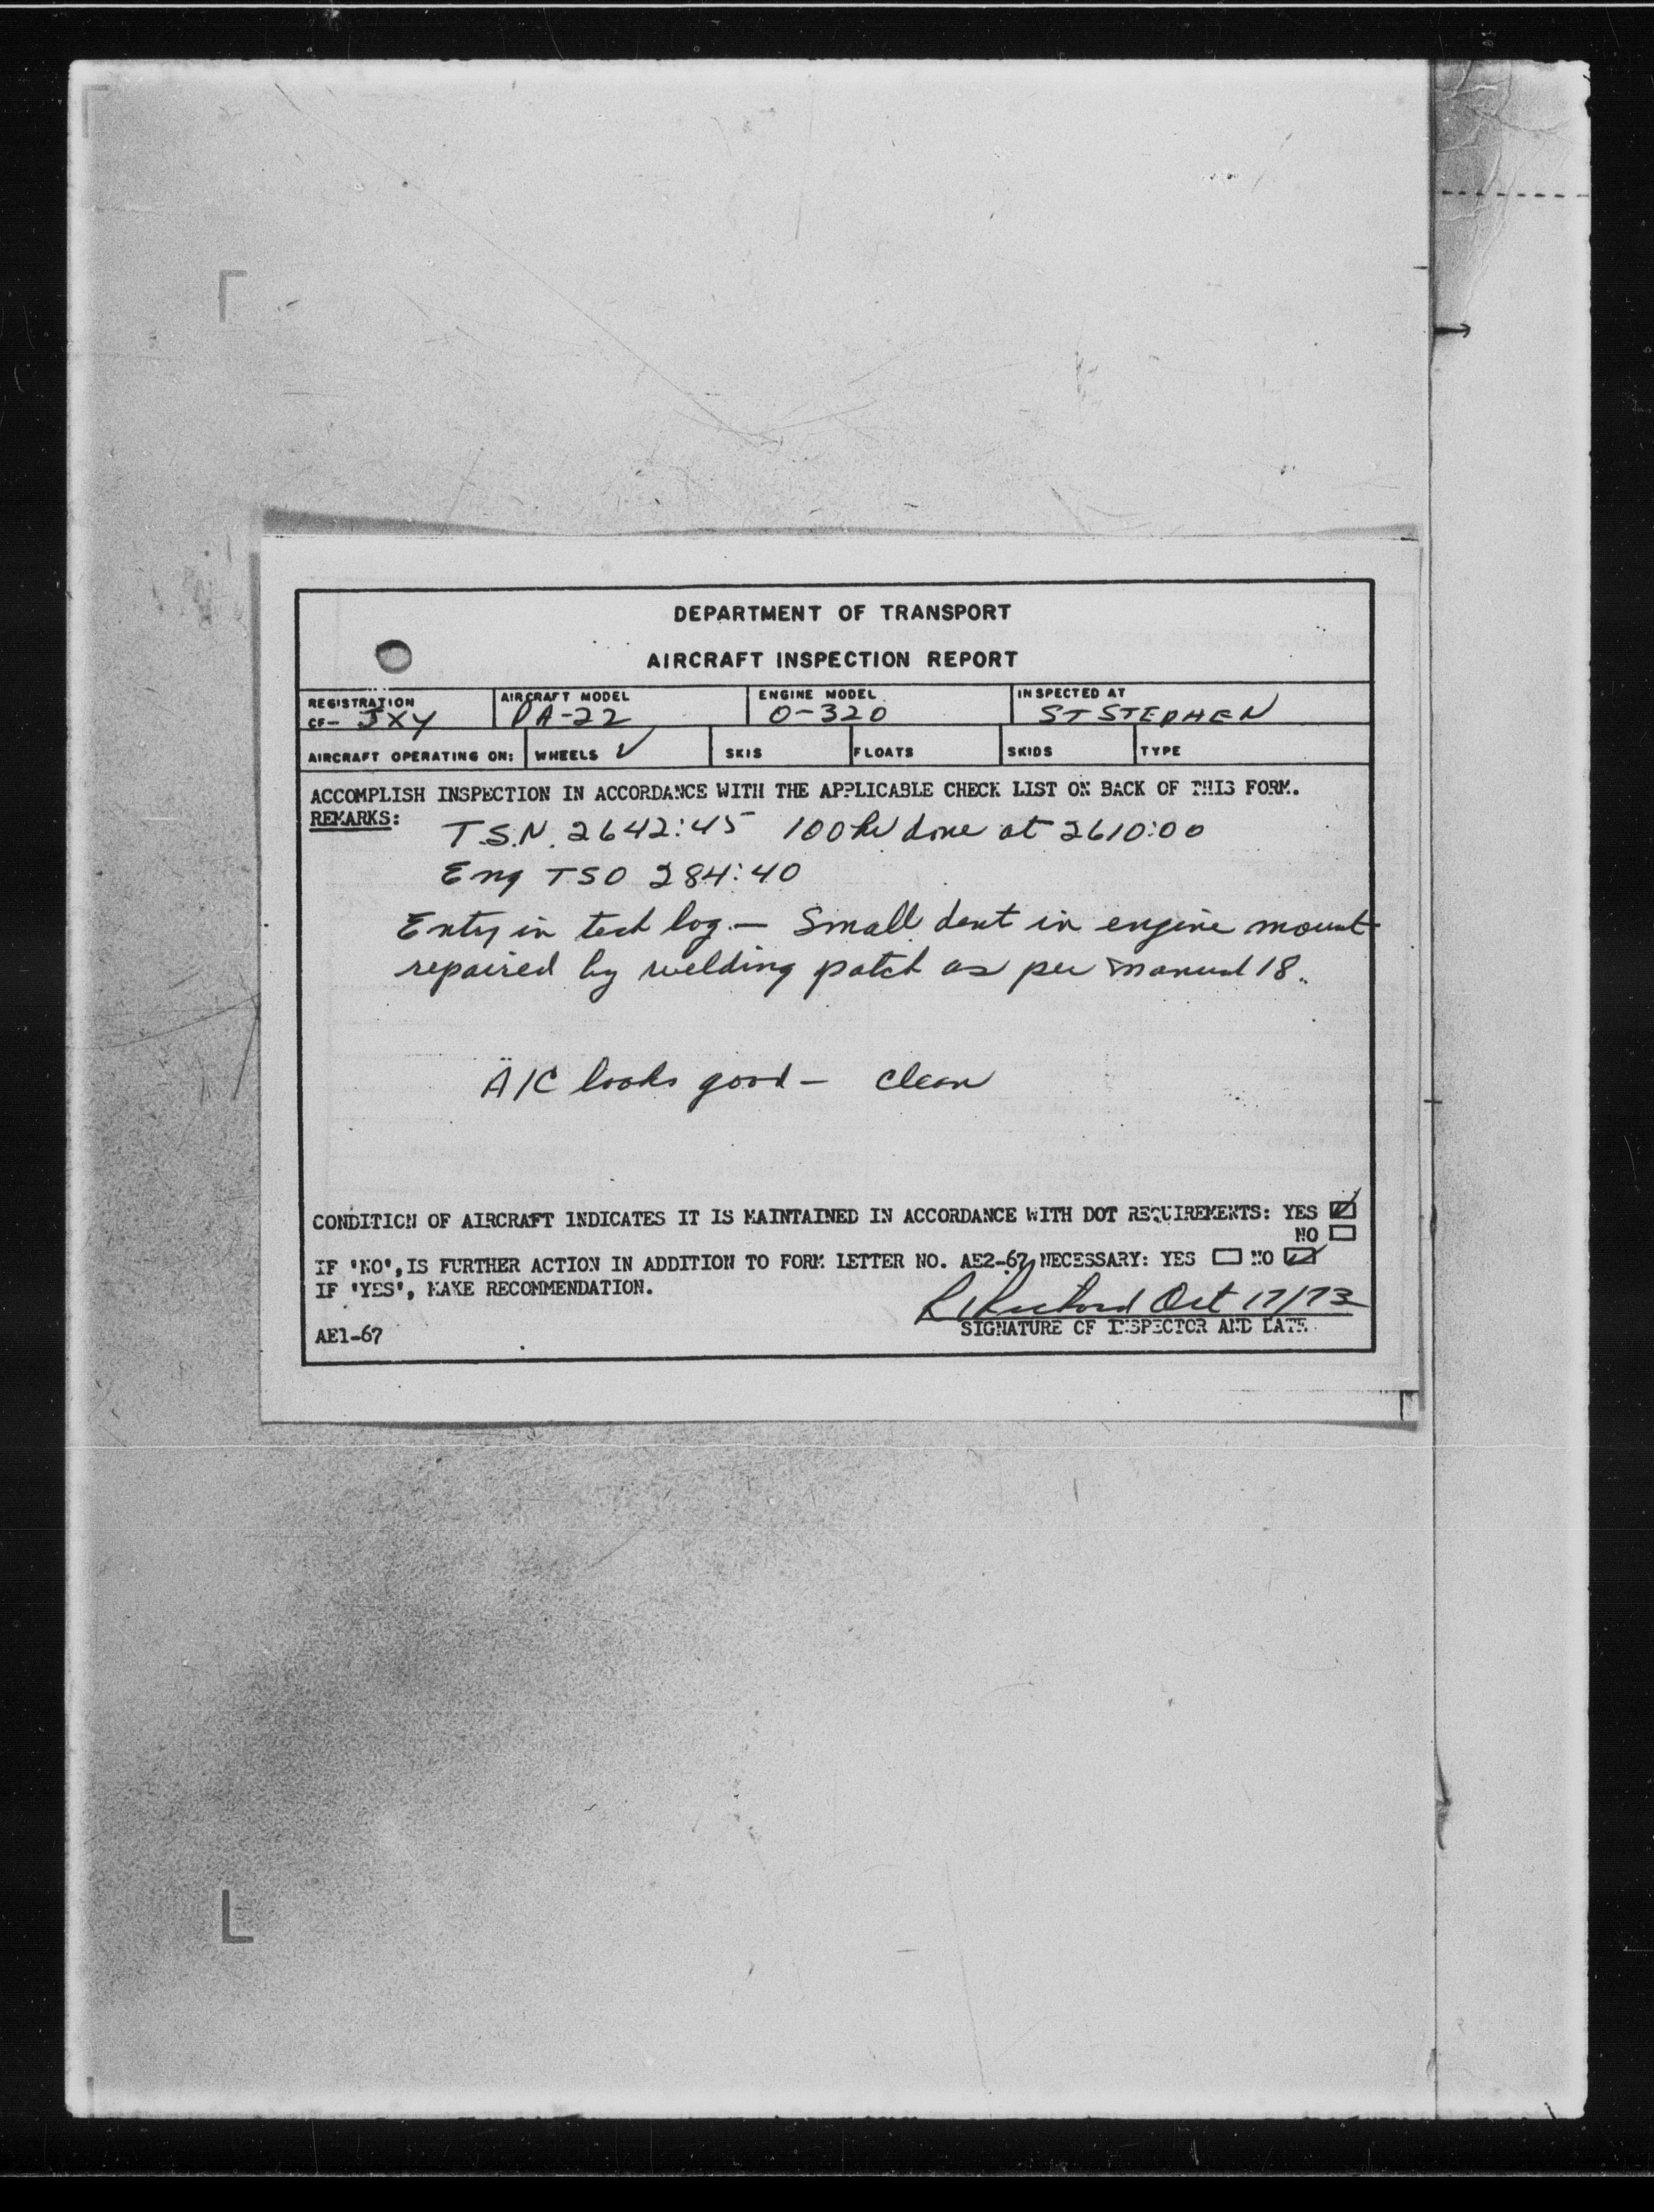 DEPARTMENT OF TRANSPORT
AIRCRAFT INSPECTION REPORT
REGISTRATION AIRCRAFT MODEL ENGINE MODEL INSPECTED AT
CF- JXY PA-22 O-320 ST STEPHEN
AIRCRAFT OPERATING ON: WHEELS ✓ SKIS FLOATS SKIDS TYPE
ACCOMPLISH INSPECTION IN ACCORDANCE WITH THE APPLICABLE CHECK LIST ON BACK OF THIS FORM.
REMARKS: T.S.N. 2642:45 100 hr done at 2610:00
Eng TSO 284:40
Entry in tech log. — Small dent in engine mount
repaired by welding patch as per manual 18.
A/C looks good — clean
CONDITION OF AIRCRAFT INDICATES IT IS MAINTAINED IN ACCORDANCE WITH DOT REQUIREMENTS: YES ☑
NO ☐
IF 'NO', IS FURTHER ACTION IN ADDITION TO FORM LETTER NO. AE2-67, NECESSARY: YES ☐ NO ☑
IF 'YES', MAKE RECOMMENDATION.
Oct 17/73
AE1-67 SIGNATURE OF INSPECTOR AND DATE